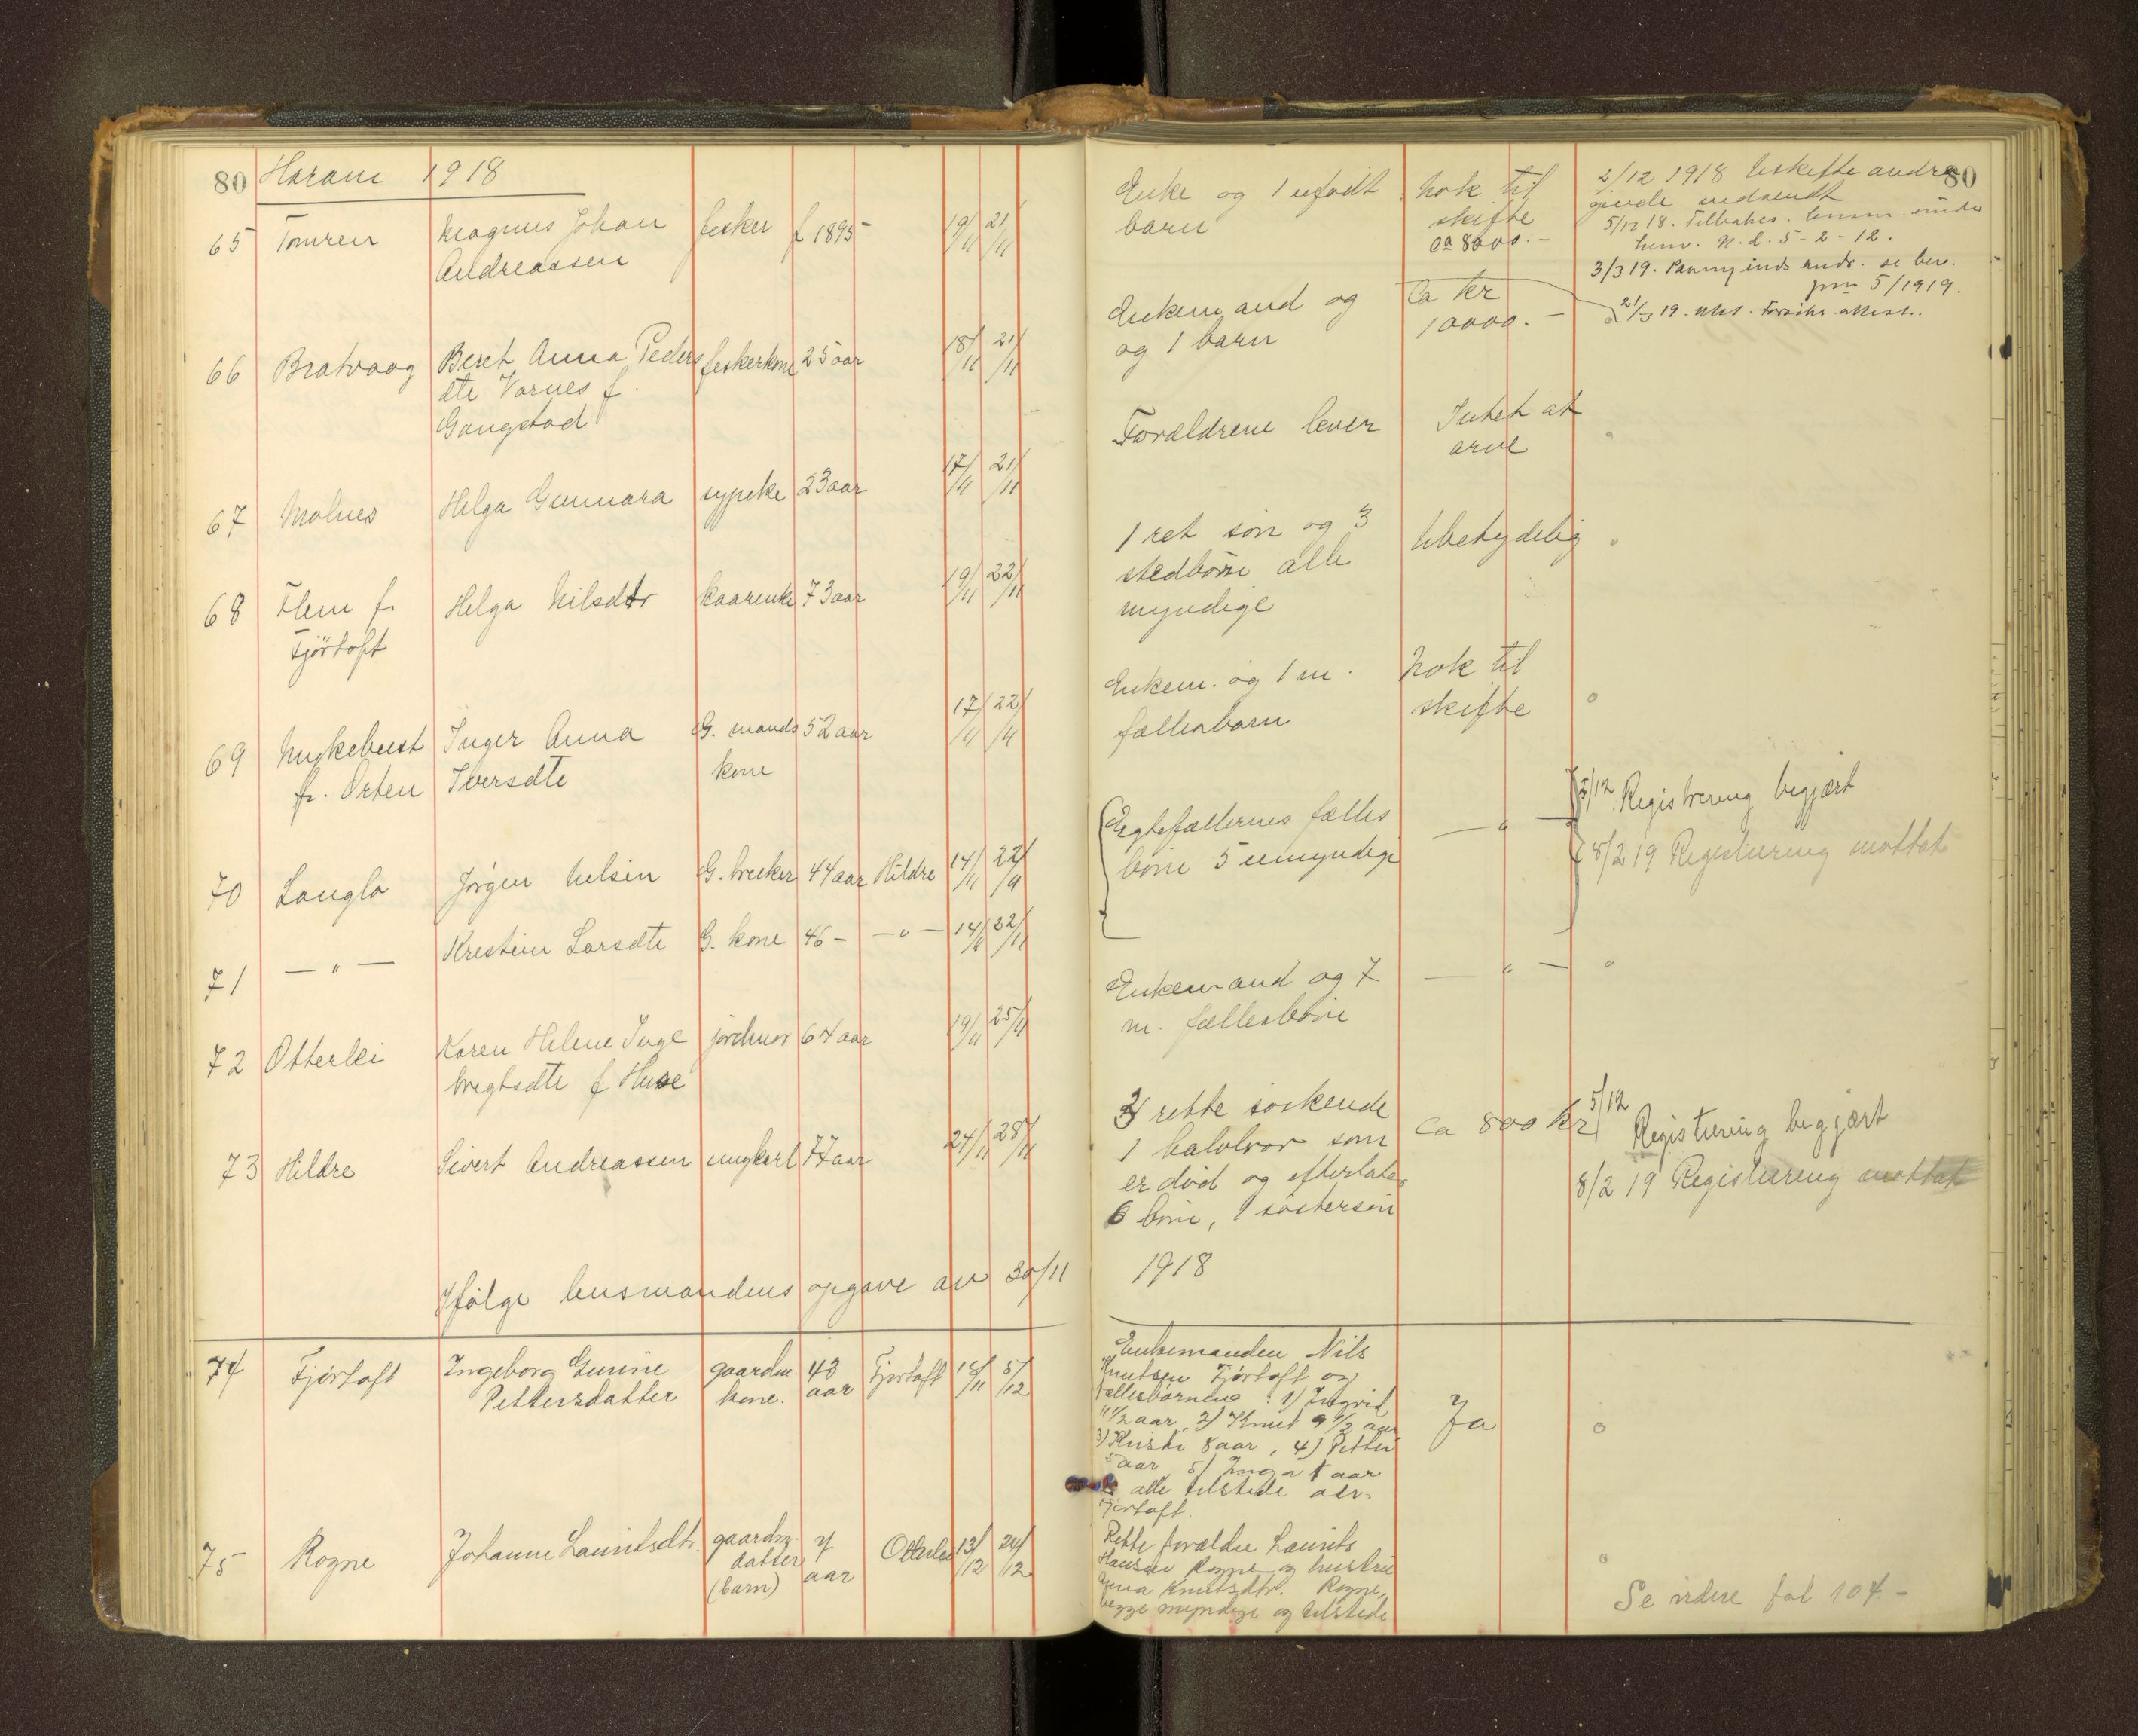 80 Haram 1918
65 Tomren Magnus Johan fisker f 1895 19/11 21/11
Andreassen
66 Bratvaag Beret Anna Peders fiskerkone 25 aar 18/11 21/11
dtr Varnes f.
Gangstad
67 Molnes Helga Gunnara sypike 23 aar 17/11 21/11
68 Flem f. Helga Nilsdtr kaarenke 73 aar 19/11 22/11
Fjörtoft
69 Myklebust Inger Anna G. mands 52 aar 17/11 22/11
fr. Orten Iversdtr kone
70 Longla Jørgen Nilsen G. bruker 44 aar Hildre 14/11 22/11
71 — " — Kristine Larsdtr G. kone 46 - — " — 14/11 22/11
72 Otterlei Karen Helene Inge jordmor 64 aar 19/11 25/11
bregtsdtr f. Huse
73 Hildre Sivert Andreassen ungkarl 77 aar 24/11 28/11
Ifölge lensmandens opgave av 30/11
74 Fjörtoft Ingeborg Gurine gaardm. 43 Fjörtoft 5/12
Pettersdatter kone. aar
75 Rogne Johanne Lauritsdtr. gaardm. 13/12 24/12
datter aar
(barn)
80
Enke og 1 ufödt nok til 2/12 1918 Uskifte andra
barn skifte
ca 8000.- 5/12 18.
5-2-12.
3/3 19.
5/1919.
Enkemand og Ca kr
og 1 barn 10000.-
Forældrene lever Intet at
arve
1 ret sön og 3 Ubetydelig
stedbörn alle
myndige
Enkem. og 1 m. nok til
fællesbarn skifte
Egtefællernes fælles — " — 5/12 Registrering begjært
börn 5 umyndige 8/2 19 Registrering mottat
Enkemand og 7 — " —
m. fællesbörn
3 rette söskende ca 800 kr 5/12 Registrering begjært
1 halvbror som
er död og efterlater 8/2 19 Registrering mottat
6 börn, 1 söstersön
1918
Enkemanden Nils
Knutsen Fjörtoft og
fællesbörnene: 1) Ingrid
11 1/2 aar, 2) Knut 9 1/2 aar Ja
3) Kristi 8 aar, 4) Petter
5 aar, 5) Inga 1 aar
alle tilstede adr.
Fjörtoft.
Rette forældre Laurits
Hansen Rogne og hustru
Anna Knutsdtr. Rogne,
begge myndige og tilstede
Se videre fol 104 -